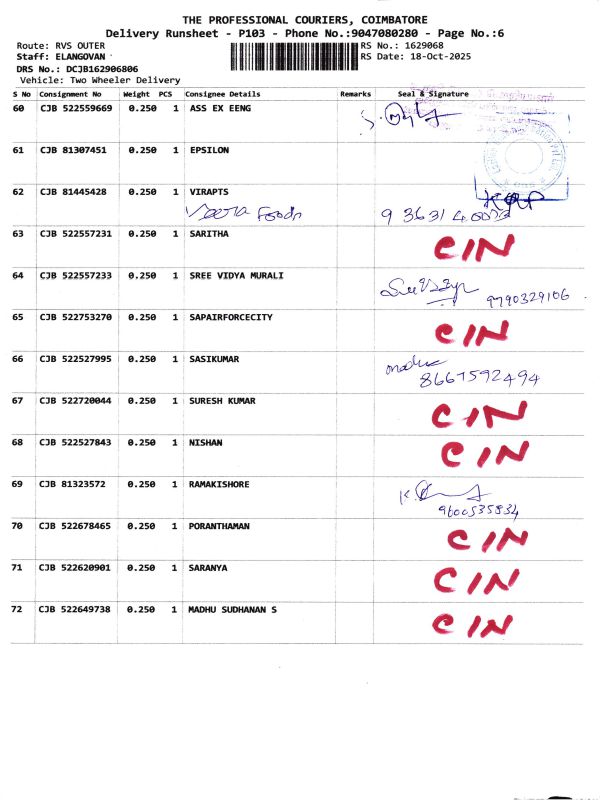 THE PROFESSIONAL COURIERS, COIMBATORE
Delivery Runsheet - P103 - Phone No.:9047080280 - Page No.:6
Route: RVS OUTER RS No.: 1629068
Staff: ELANGOVAN RS Date: 18-Oct-2025
DRS No.: DCJB162906806
Vehicle: Two Wheeler Delivery
S No Consignment No Weight PCS Consignee Details Remarks Seal & Signature
60 CJB 522559669 0.250 1 ASS EX EENG
61 CJB 81307451 0.250 1 EPSILON
62 CJB 81445428 0.250 1 VIRAPTS
Veera Foods
63 CJB 522557231 0.250 1 SARITHA CIN
64 CJB 522557233 0.250 1 SREE VIDYA MURALI
9790329106
65 CJB 522753270 0.250 1 SAPAIRFORCECITY CIN
66 CJB 522527995 0.250 1 SASIKUMAR
8667592494
67 CJB 522720044 0.250 1 SURESH KUMAR CIN
68 CJB 522527843 0.250 1 NISHAN CIN
69 CJB 81323572 0.250 1 RAMAKISHORE
9600535834
70 CJB 522678465 0.250 1 PORANTHAMAN CIN
71 CJB 522620901 0.250 1 SARANYA CIN
72 CJB 522649738 0.250 1 MADHU SUDHANAN S CIN